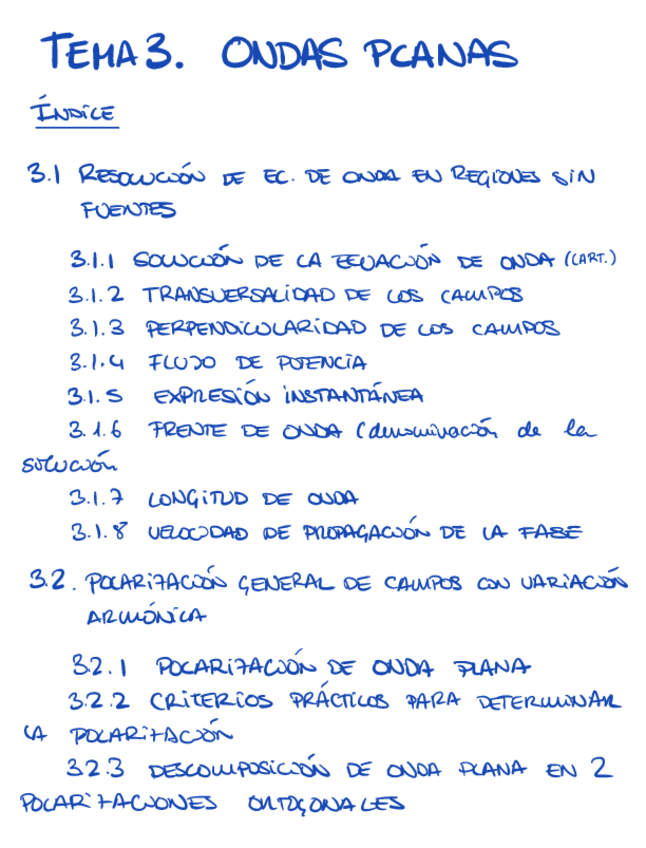 TEMA 3. ONDAS PLANAS
ÍNDICE
3.1 RESOLUCIÓN DE EC. DE ONDA EN REGIONES SIN
FUENTES
3.1.1 SOLUCIÓN DE LA ECUACIÓN DE ONDA (CART.)
3.1.2 TRANSVERSALIDAD DE LOS CAMPOS
3.1.3 PERPENDICULARIDAD DE LOS CAMPOS
3.1.4 FLUJO DE POTENCIA
3.1.5 EXPRESIÓN INSTANTÁNEA
3.1.6 FRENTE DE ONDA (denominación de la
solución
3.1.7 LONGITUD DE ONDA
3.1.8 VELOCIDAD DE PROPAGACIÓN DE LA FASE
3.2. POLARIZACIÓN GENERAL DE CAMPOS CON VARIACIÓN
ARMÓNICA
3.2.1 POLARIZACIÓN DE ONDA PLANA
3.2.2 CRITERIOS PRÁCTICOS PARA DETERMINAR
LA POLARIZACIÓN
3.2.3 DESCOMPOSICIÓN DE ONDA PLANA EN 2
POLARIZACIONES ORTOGONALES